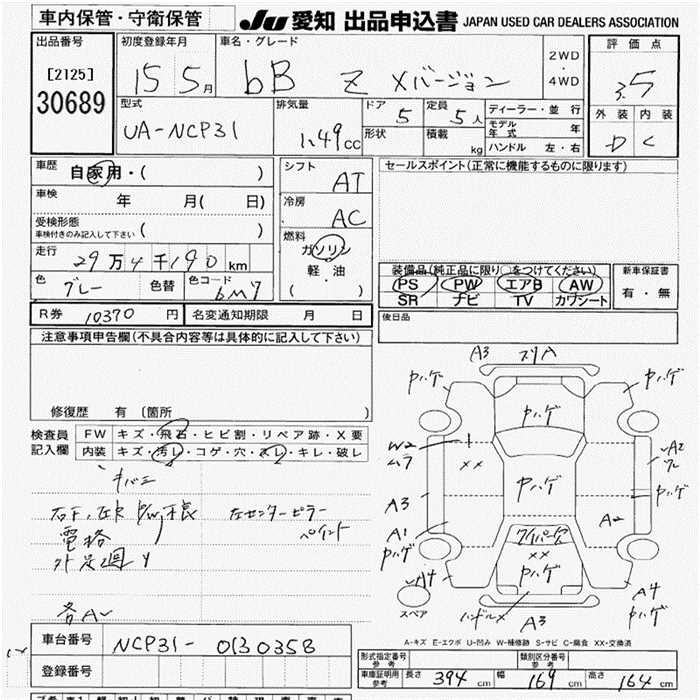 車内保管・守衛保管
JU 愛知 出品申込書 JAPAN USED CAR DEALERS ASSOCIATION
出品番号
[2125]
30689
初度登録年月
15 5月
車名・グレード
bB Z Xバージョン
2WD
・
4WD
評価点
3.5
外装 内装
D C
型式
UA-NCP31
排気量
1.49cc
ドア
5
形状
定員
5人
積載
kg
ディーラー・並行
モデル年式 年
ハンドル 左・右
車歴 自家用・( )
車検 年 月( 日)
受検形態
車検付きのみ記入して下さい ( )
走行 29万4千190km
色 グレー 色替 色コード 6M7
シフト
AT
冷房
AC
燃料
ガソリン
軽・油
( )
セールスポイント(正常に機能するものに限ります)
装備品(純正品に限り○をつけてください)
PS PW エアB AW
SR ナビ TV カワシート
新車保証書
有・無
R券 10370円
名変通知期限 月 日
後日品
注意事項申告欄(不具合内容等は具体的に記入して下さい)
修復歴 有 [箇所 ]
検査員
記入欄
FW キズ・飛石・ヒビ割・リペア跡・X要
内装 キズ・汚レ・コゲ・穴・スレ・キレ・破レ
キバミ
左センターピラー
ペイント
電格
A3
中ハゲ
中ハゲ
中ハゲ
W2
ムラ
××
A2
A3
中ハゲ
A2
A1
中ハゲ
××
中ハゲ
A4
スペア
ハンドルX
A3
A4
中ハゲ
A-キズ E-エクボ U-凹み W-補修跡 S-サビ C-腐食 XX-交換済
車台番号 NCP31-0130358
登録番号
形式指定番号
参考
類別区分番号
参考
車庫証明用
参考
長さ 394cm 幅 169cm 高さ 164cm